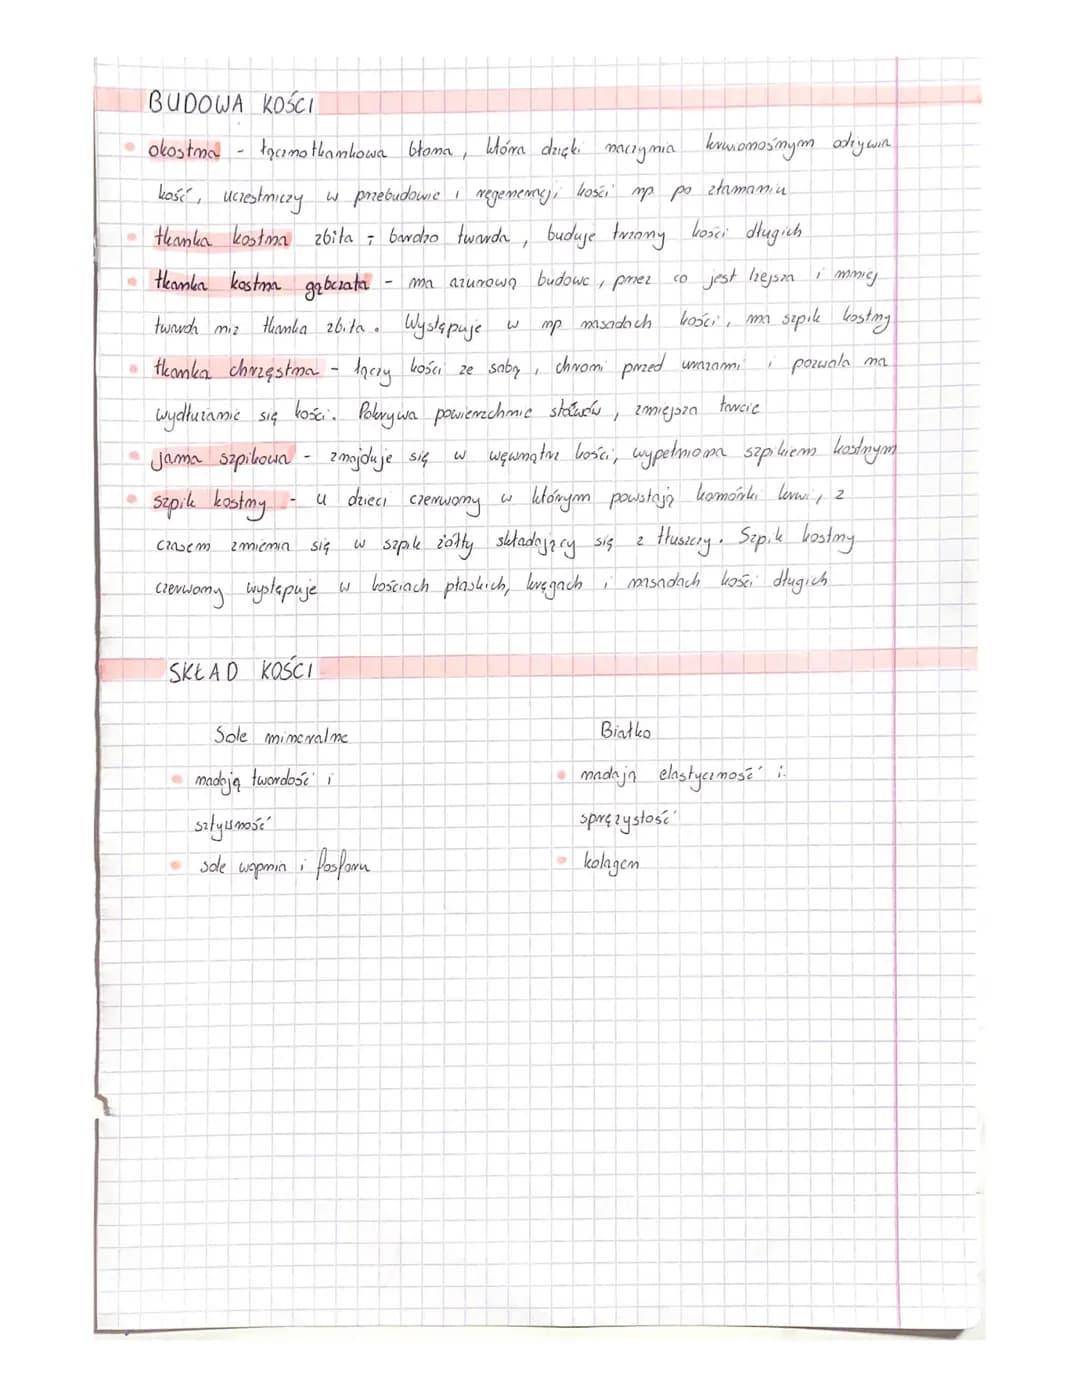 BUDOWA KOŚCI
okostna - łącznotkankowa błona, która dzięki naczynia krwionośnym odżywia
kość, uczestniczy w przebudowie i regeneracji kości np po złamaniu
tkanka kostna zbita - bardzo twarda, buduje trzony kości długich
tkanka kostna gąbczata - ma ażurową budowę, przez co jest lżejsza i mniej
twarda niż tkanka zbita. Występuje w np nasadach kości, ma szpik kostny
tkanka chrzęstna - łączy kości ze sobą, chroni przed urazami i pozwala na
wydłużanie się kości. Pokrywa powierzchnie stawów, zmniejsza tarcie
jama szpikowa - znajduje się w wewnątrz kości, wypełniona szpikiem kostnym
szpik kostny - u dzieci czerwony w którym powstają komórki krwi, z
czasem zmienia się w szpik żółty składający się z tłuszczy. Szpik kostny
czerwony występuje w kościach płaskich, kręgach i nasadach kości długich
SKŁAD KOŚCI
Sole mineralne
nadają twardość i
sztywność
sole wapnia i fosforu
Białko
nadają elastyczność i
sprężystość
kolagen